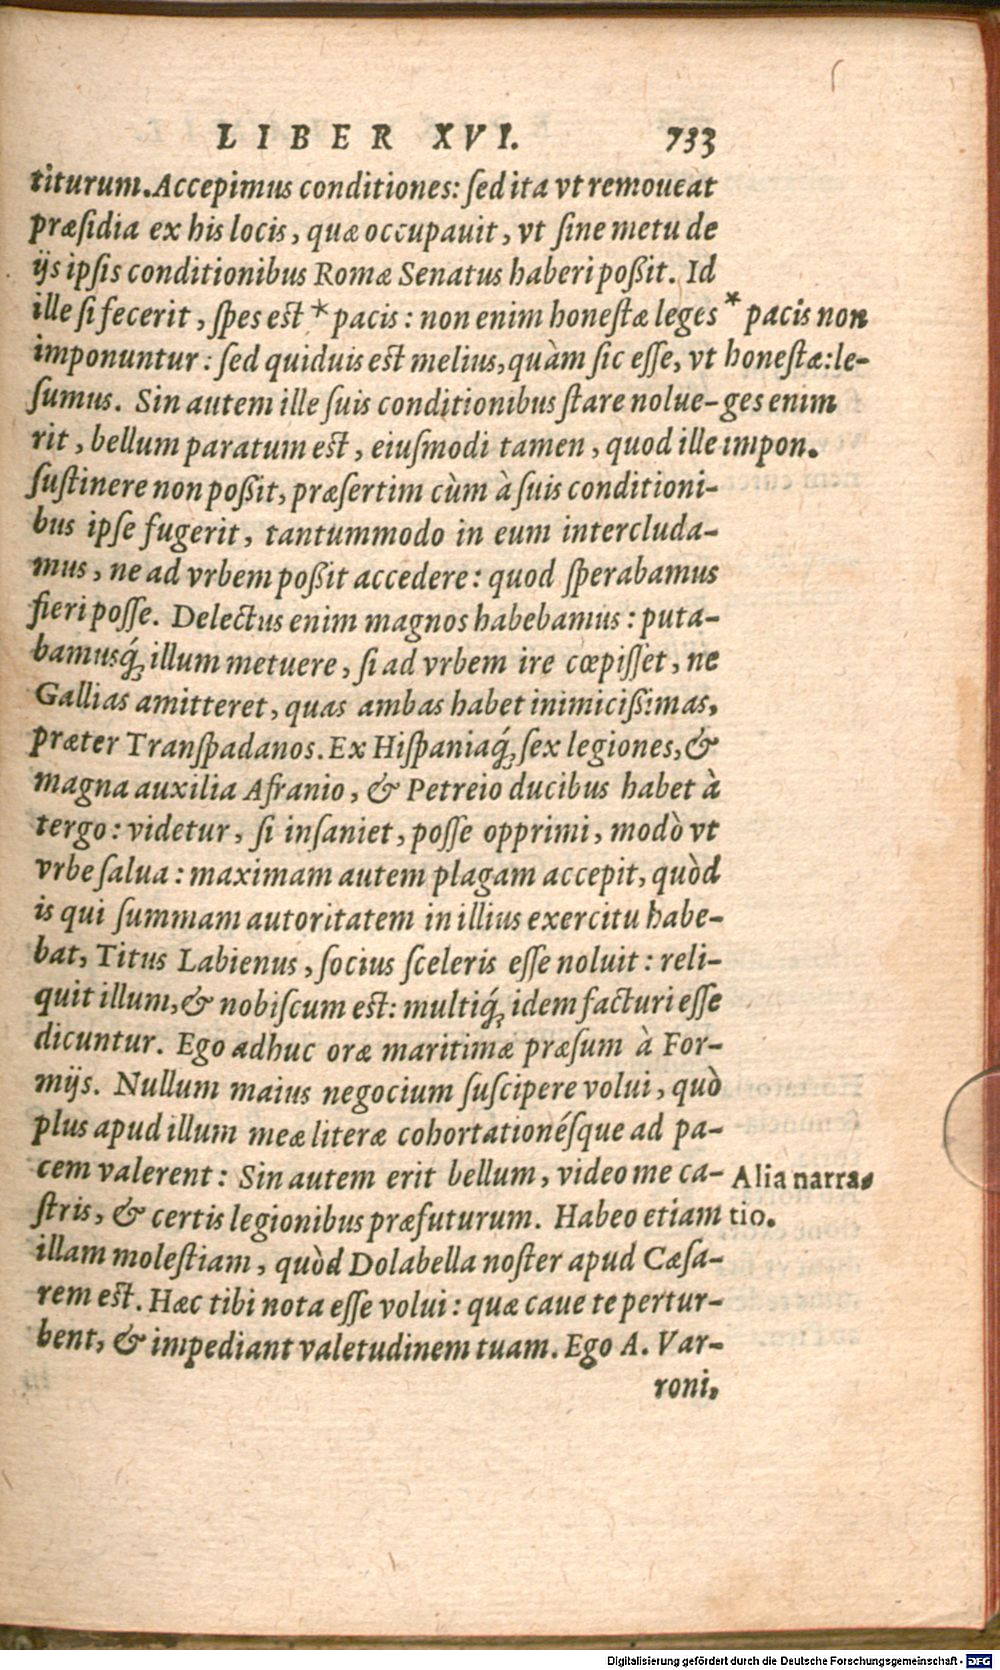 LIBER XVI. 733
titurum. Accepimus conditiones: ſed ita vt remoueat
præſidia ex his locis, quæ occupauit, vt ſine metu de
ijs ipſis conditionibus Romæ Senatus haberi poßit. Id
ille ſi fecerit, ſpes est * pacis: non enim honeſtæ leges
imponuntur: ſed quiduis est melius, quàm ſic eſſe, vt
ſumus. Sin autem ille ſuis conditionibus ſtare nolue-
rit, bellum paratum est, eiuſmodi tamen, quod ille
ſuſtinere non poßit, præſertim cùm à ſuis conditioni-
bus ipſe fugerit, tantummodo in eum intercluda-
mus, ne ad vrbem poßit accedere: quod ſperabamus
fieri poſſe. Delectus enim magnos habebamus: puta-
bamusq́; illum metuere, ſi ad vrbem ire cœpiſſet, ne
Gallias amitteret, quas ambas habet inimicißimas,
præter Tranſpadanos. Ex Hiſpaniaq́; ſex legiones, &
magna auxilia Afranio, & Petreio ducibus habet à
tergo: videtur, ſi inſaniet, poſſe opprimi, modò vt
vrbe ſalua: maximam autem plagam accepit, quòd
is qui ſummam autoritatem in illius exercitu habe-
bat, Titus Labienus, ſocius ſceleris eſſe noluit: reli-
quit illum, & nobiſcum est: multiq́; idem facturi eſſe
dicuntur. Ego adhuc oræ maritimæ præſum à For-
mijs. Nullum maius negocium ſuſcipere volui, quò
plus apud illum meæ literæ cohortationéſque ad pa-
cem valerent: Sin autem erit bellum, video me ca-
ſtris, & certis legionibus præfuturum. Habeo etiam
illam moleſtiam, quòd Dolabella noſter apud Cæſa-
rem est. Hæc tibi nota eſſe volui: quæ caue te pertur-
bent, & impediant valetudinem tuam. Ego A. Var-
roni,
* pacis non
honeſtæ: le-
ges enim
impon.
Alia narra-
tio.
Digitalisierung gefördert durch die Deutsche Forschungsgemeinschaft - DFG